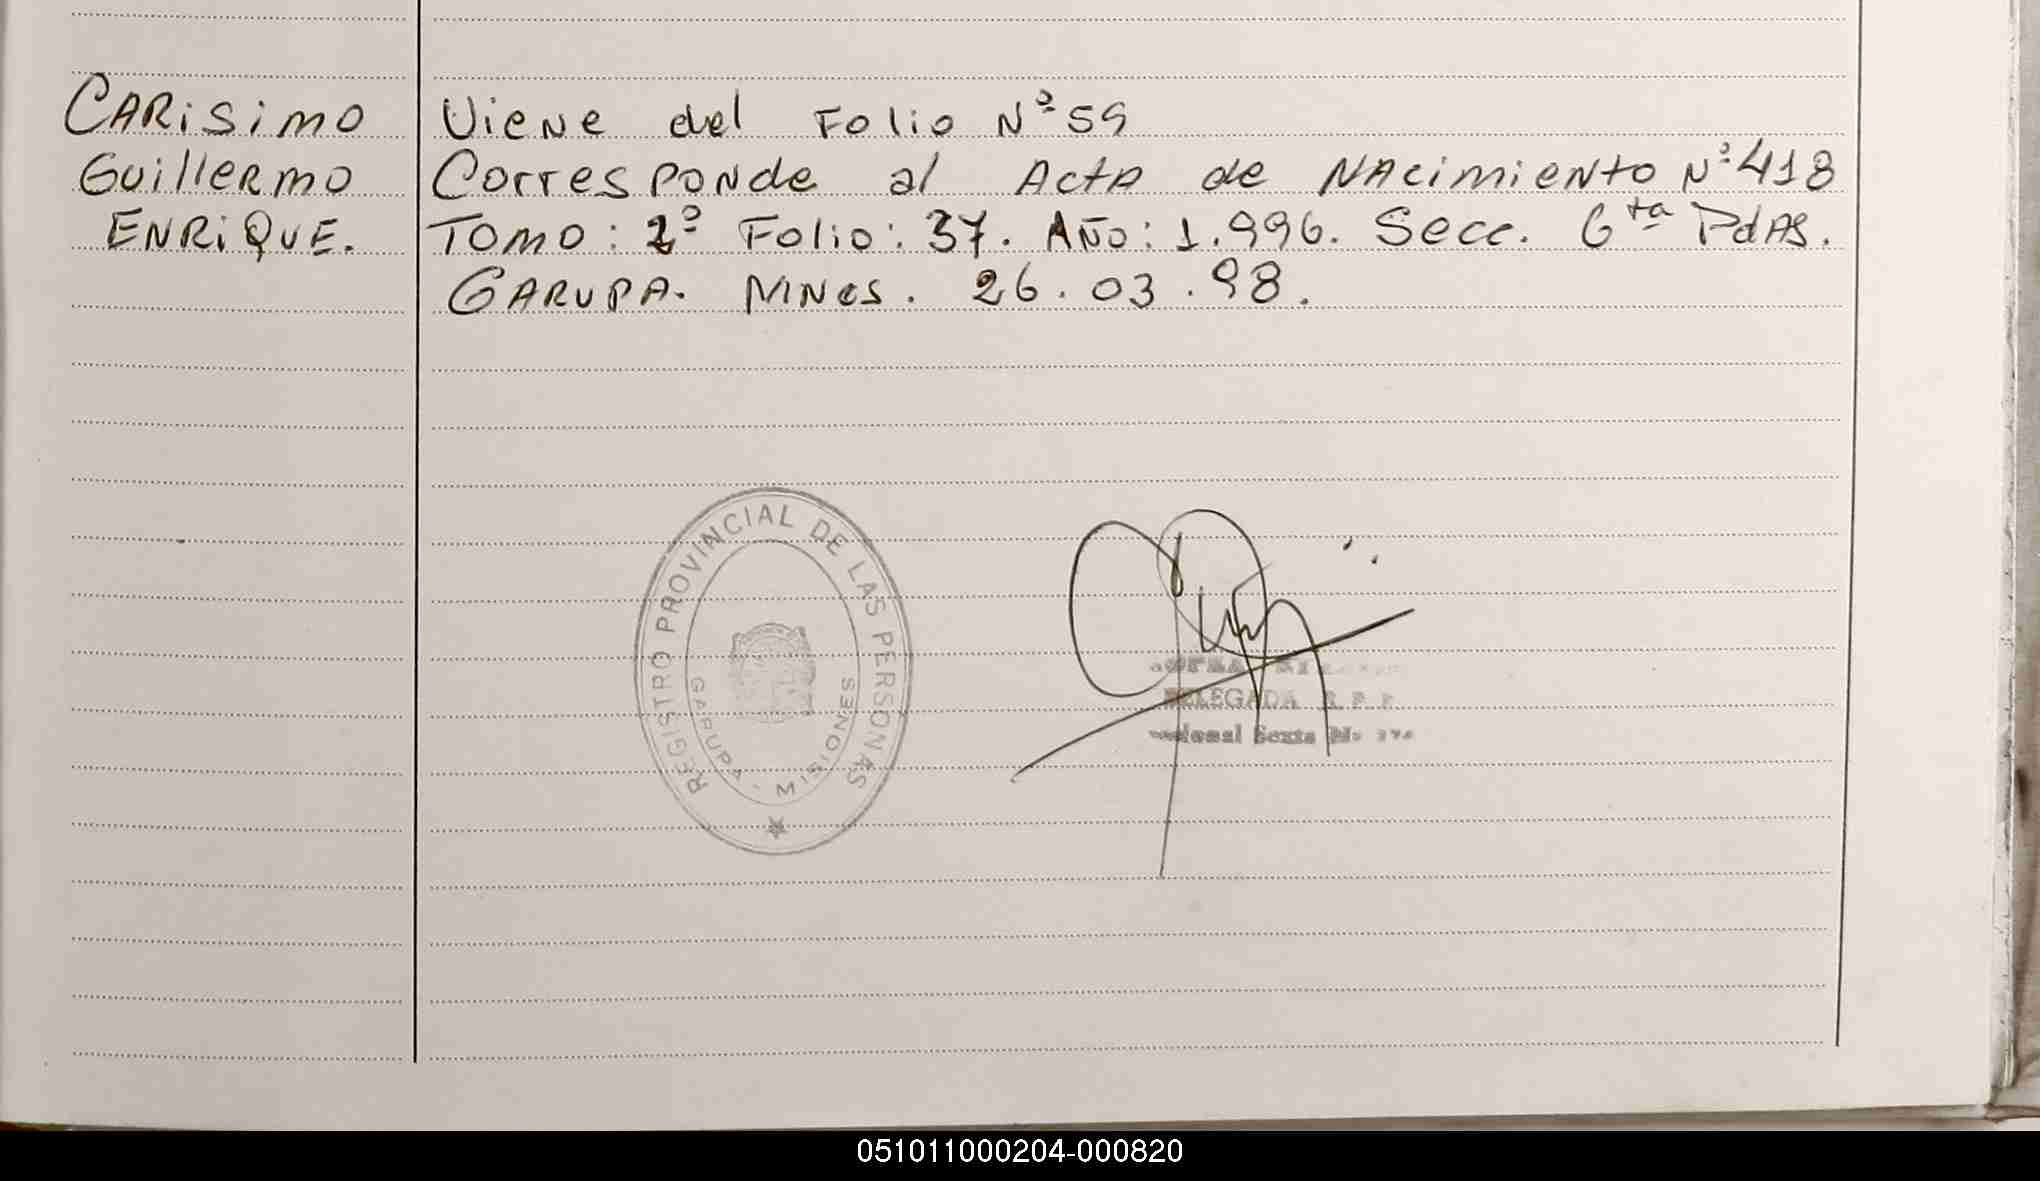 CARISIMO
Guillermo
ENRIQUE.
Viene del Folio Nº 59
Corresponde al Acta de Nacimiento Nº 418
Tomo: 2º Folio: 37. Año: 1.996. Secc. 6ta Pdas.
GARUPA. MNES. 26.03.98.
REGISTRO PROVINCIAL DE LAS PERSONAS
GARUPA - MISIONES
DELEGADA R. P. P.
Sexta
051011000204-000820